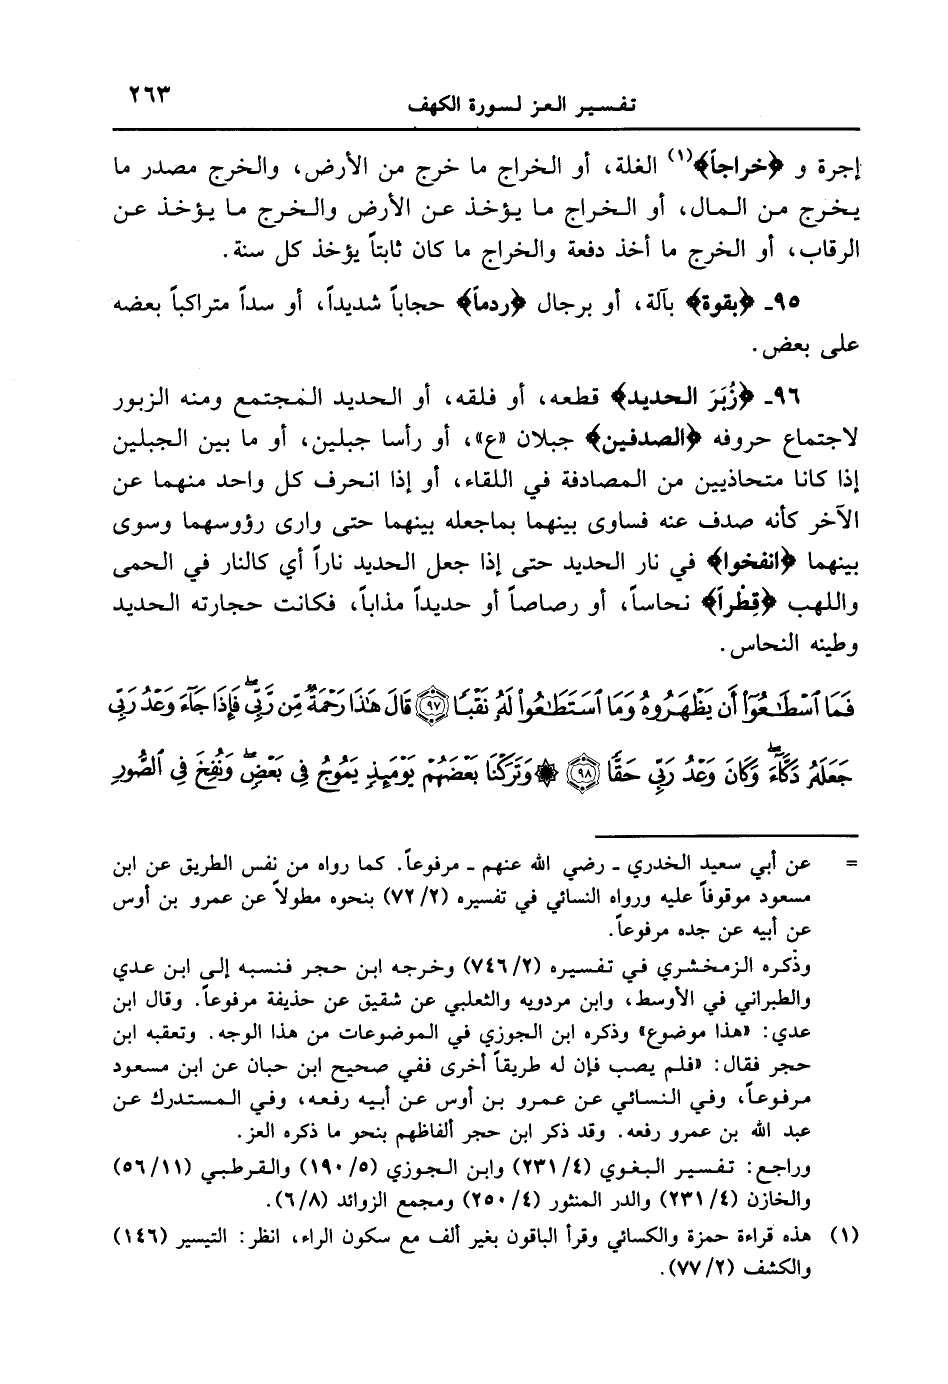 تفسير العز لسورة الكهف
٢٦٣
إجرة و ﴿خراجاً﴾(١) الغلة، أو الخراج ما خرج من الأرض، والخرج مصدر ما
يخرج من المال، أو الخراج ما يؤخذ عن الأرض والخرج ما يؤخذ عن
الرقاب، أو الخرج ما أخذ دفعة والخراج ما كان ثابتاً يؤخذ كل سنة.
٩٥ـ ﴿بقوة﴾ بآلة، أو برجال ﴿ردماً﴾ حجاباً شديداً، أو سداً متراكباً بعضه
على بعض.
٩٦ـ ﴿زُبَرَ الحديد﴾ قطعه، أو فلقه، أو الحديد المجتمع ومنه الزبور
لاجتماع حروفه ﴿الصدفين﴾ جبلان «ع»، أو رأسا جبلين، أو ما بين الجبلين
إذا كانا متحاذيين من المصادفة في اللقاء، أو إذا انحرف كل واحد منهما عن
الآخر كأنه صدف عنه فساوى بينهما بماجعله بينهما حتى وارى رؤوسهما وسوى
بينهما ﴿انفخوا﴾ في نار الحديد حتى إذا جعل الحديد ناراً أي كالنار في الحمى
واللهب ﴿قِطْراً﴾ نحاساً، أو رصاصاً أو حديداً مذاباً، فكانت حجارته الحديد
وطينه النحاس.
فَمَا ٱسْطَٰعُوٓا۟ أَن يَظْهَرُوهُ وَمَا ٱسْتَطَٰعُوا۟ لَهُۥ نَقْبًا ﴿٩٧﴾ قَالَ هَٰذَا رَحْمَةٌ مِّن رَّبِّى ۖ فَإِذَا جَآءَ وَعْدُ رَبِّى
جَعَلَهُۥ دَكَّآءَ ۖ وَكَانَ وَعْدُ رَبِّى حَقًّا ﴿٩٨﴾ ۞ وَتَرَكْنَا بَعْضَهُمْ يَوْمَئِذٍ يَمُوجُ فِى بَعْضٍ ۖ وَنُفِخَ فِى ٱلصُّورِ
= عن أبي سعيد الخدري ـ رضي الله عنهم ـ مرفوعاً. كما رواه من نفس الطريق عن ابن
مسعود موقوفاً عليه ورواه النسائي في تفسيره (٧٢/٢) بنحوه مطولاً عن عمرو بن أوس
عن أبيه عن جده مرفوعاً.
وذكره الزمخشري في تفسيره (٧٤٦/٢) وخرجه ابن حجر فنسبه إلى ابن عدي
والطبراني في الأوسط، وابن مردويه والثعلبي عن شقيق عن حذيفة مرفوعاً. وقال ابن
عدي: «هذا موضوع» وذكره ابن الجوزي في الموضوعات من هذا الوجه. وتعقبه ابن
حجر فقال: «فلم يصب فإن له طريقاً أخرى ففي صحيح ابن حبان عن ابن مسعود
مرفوعاً، وفي النسائي عن عمرو بن أوس عن أبيه رفعه، وفي المستدرك عن
عبد الله بن عمرو رفعه. وقد ذكر ابن حجر ألفاظهم بنحو ما ذكره العز.
وراجع: تفسير البغوي (٢٣١/٤) وابن الجوزي (١٩٠/٥) والقرطبي (٥٦/١١)
والخازن (٢٣١/٤) والدر المنثور (٢٥٠/٤) ومجمع الزوائد (٦/٨).
(١) هذه قراءة حمزة والكسائي وقرأ الباقون بغير ألف مع سكون الراء، انظر: التيسير (١٤٦)
والكشف (٧٧/٢).